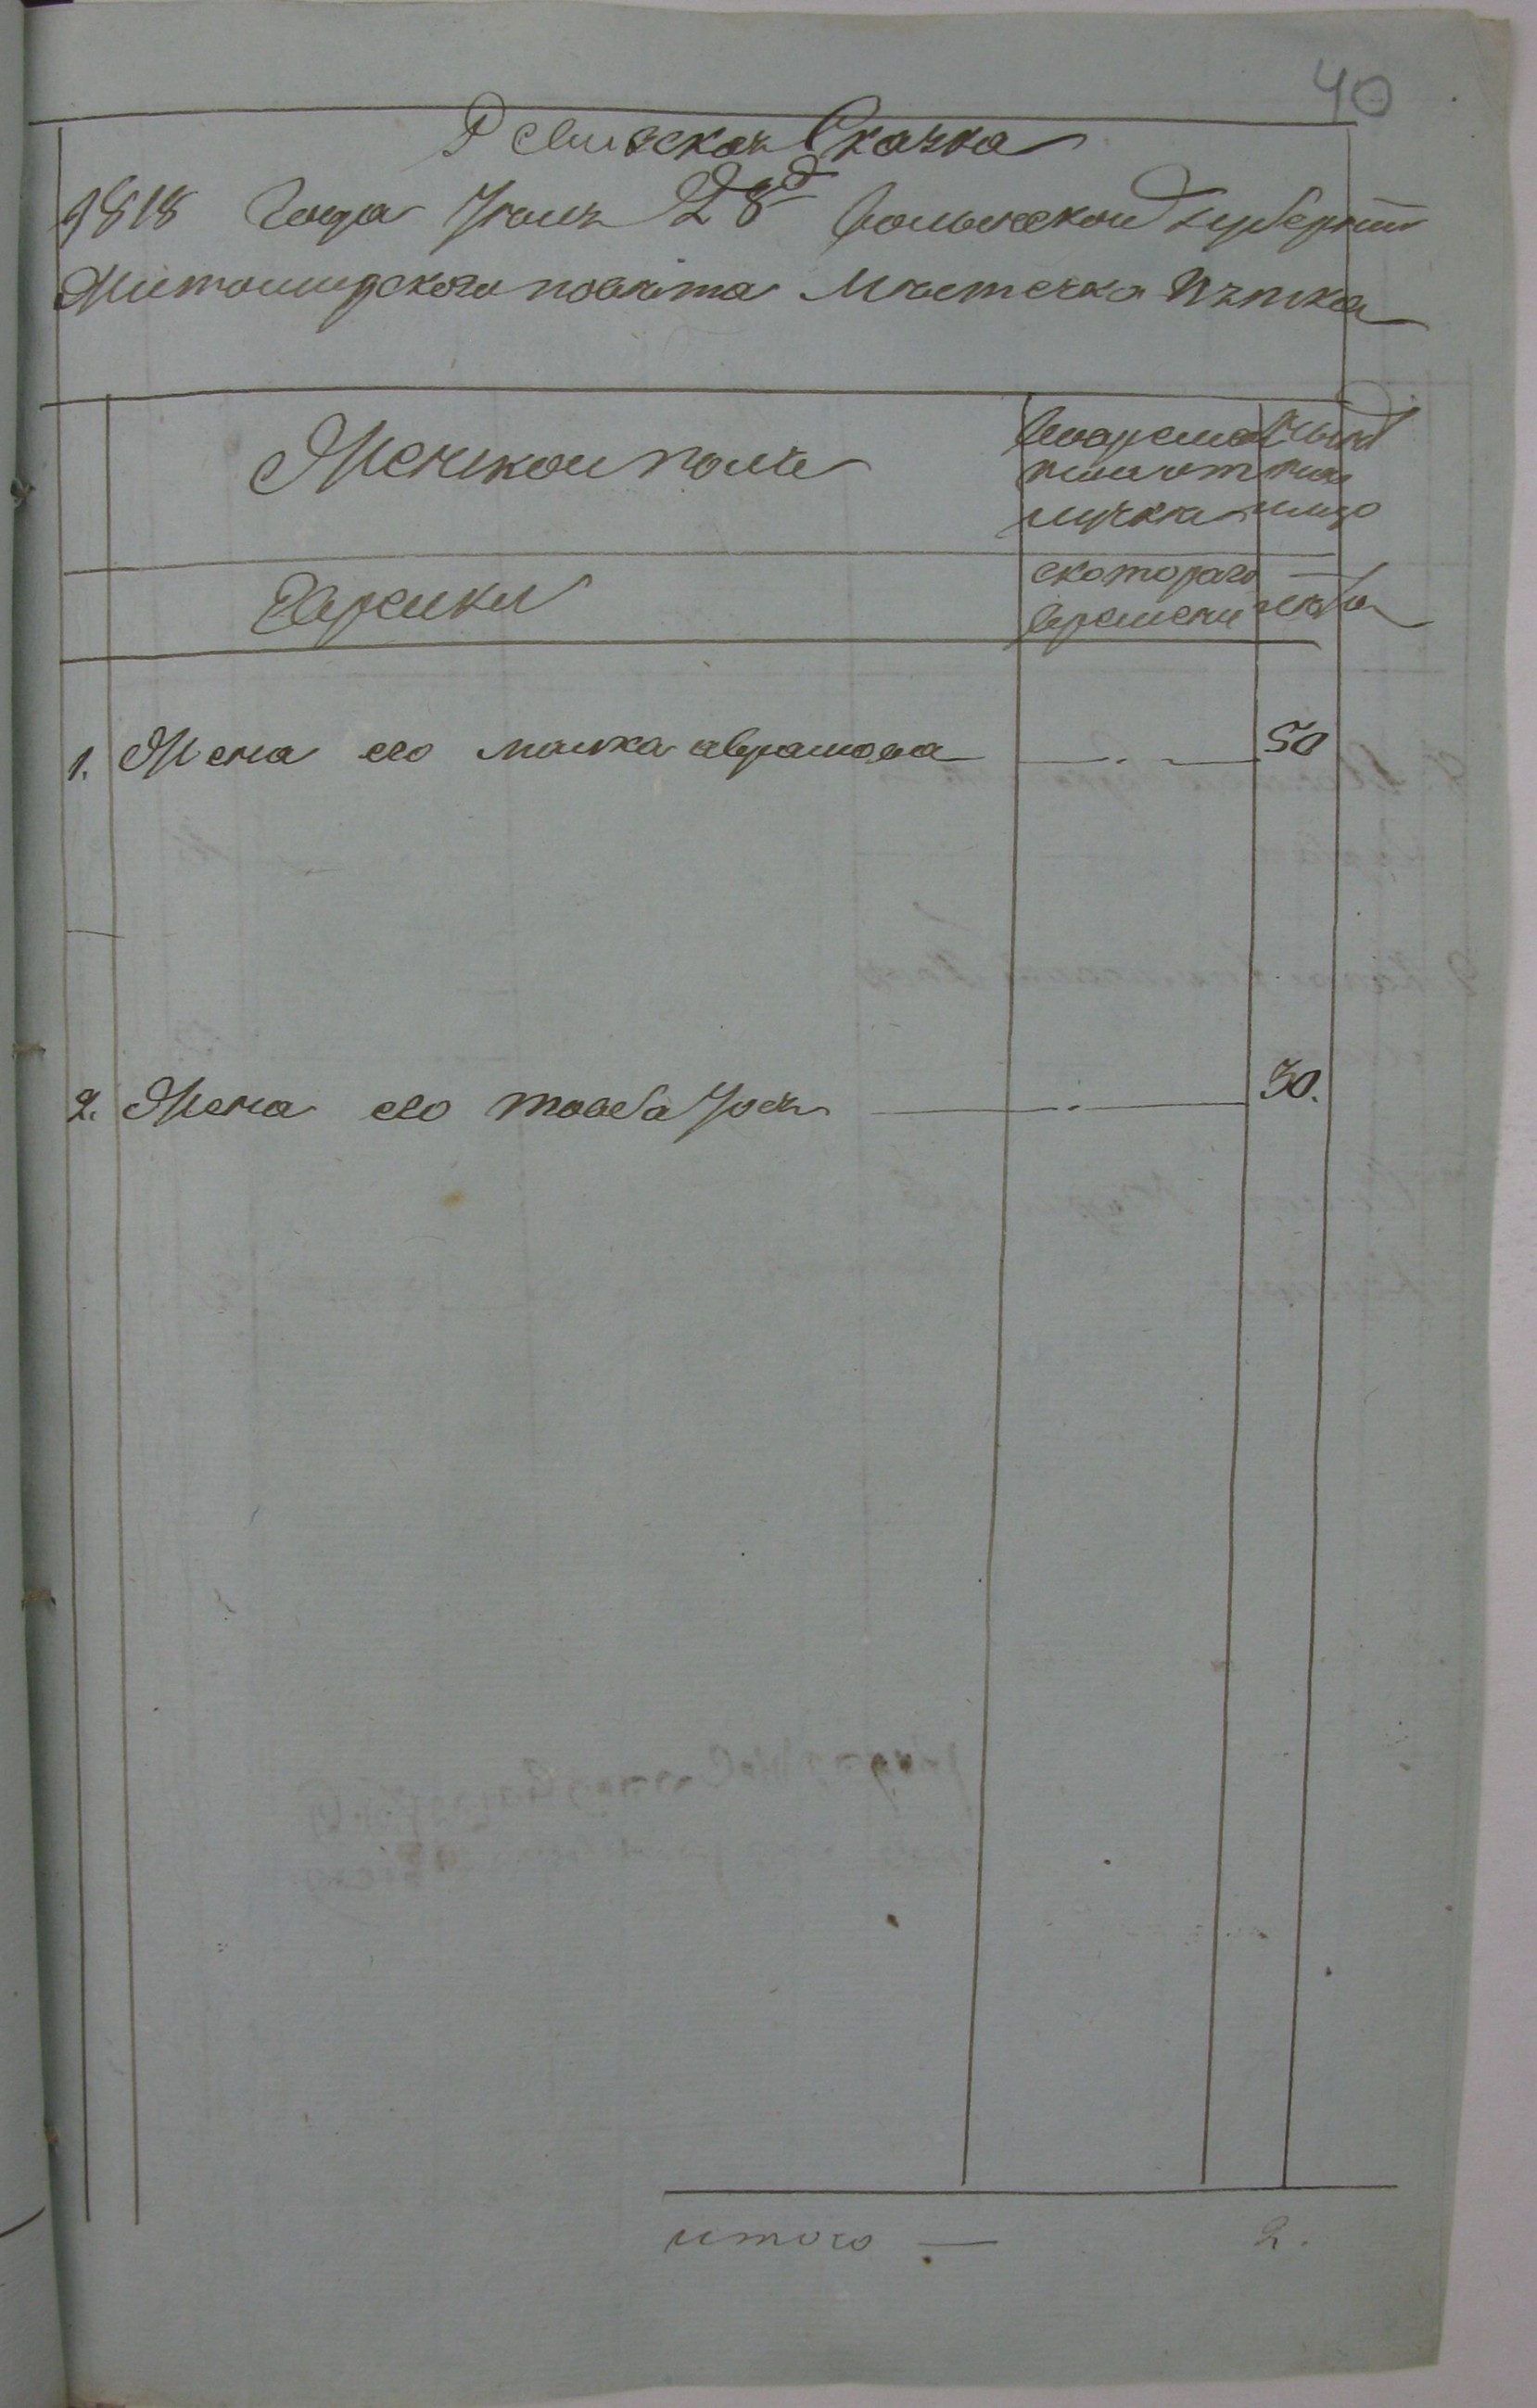 40
Ревизская Сказка
1818 Года Июля 28д Волынской губернии
Житомирского повѣта Мѣстечка Пятка
Женской полъ
Вовремен ной отлучки
Ныне на лицо
Еврейки
скоторого времени
лѣта
1. Жена его малка аврамова — . — 50
2. Жена его товба Иося — . — 30.
итого — 2.